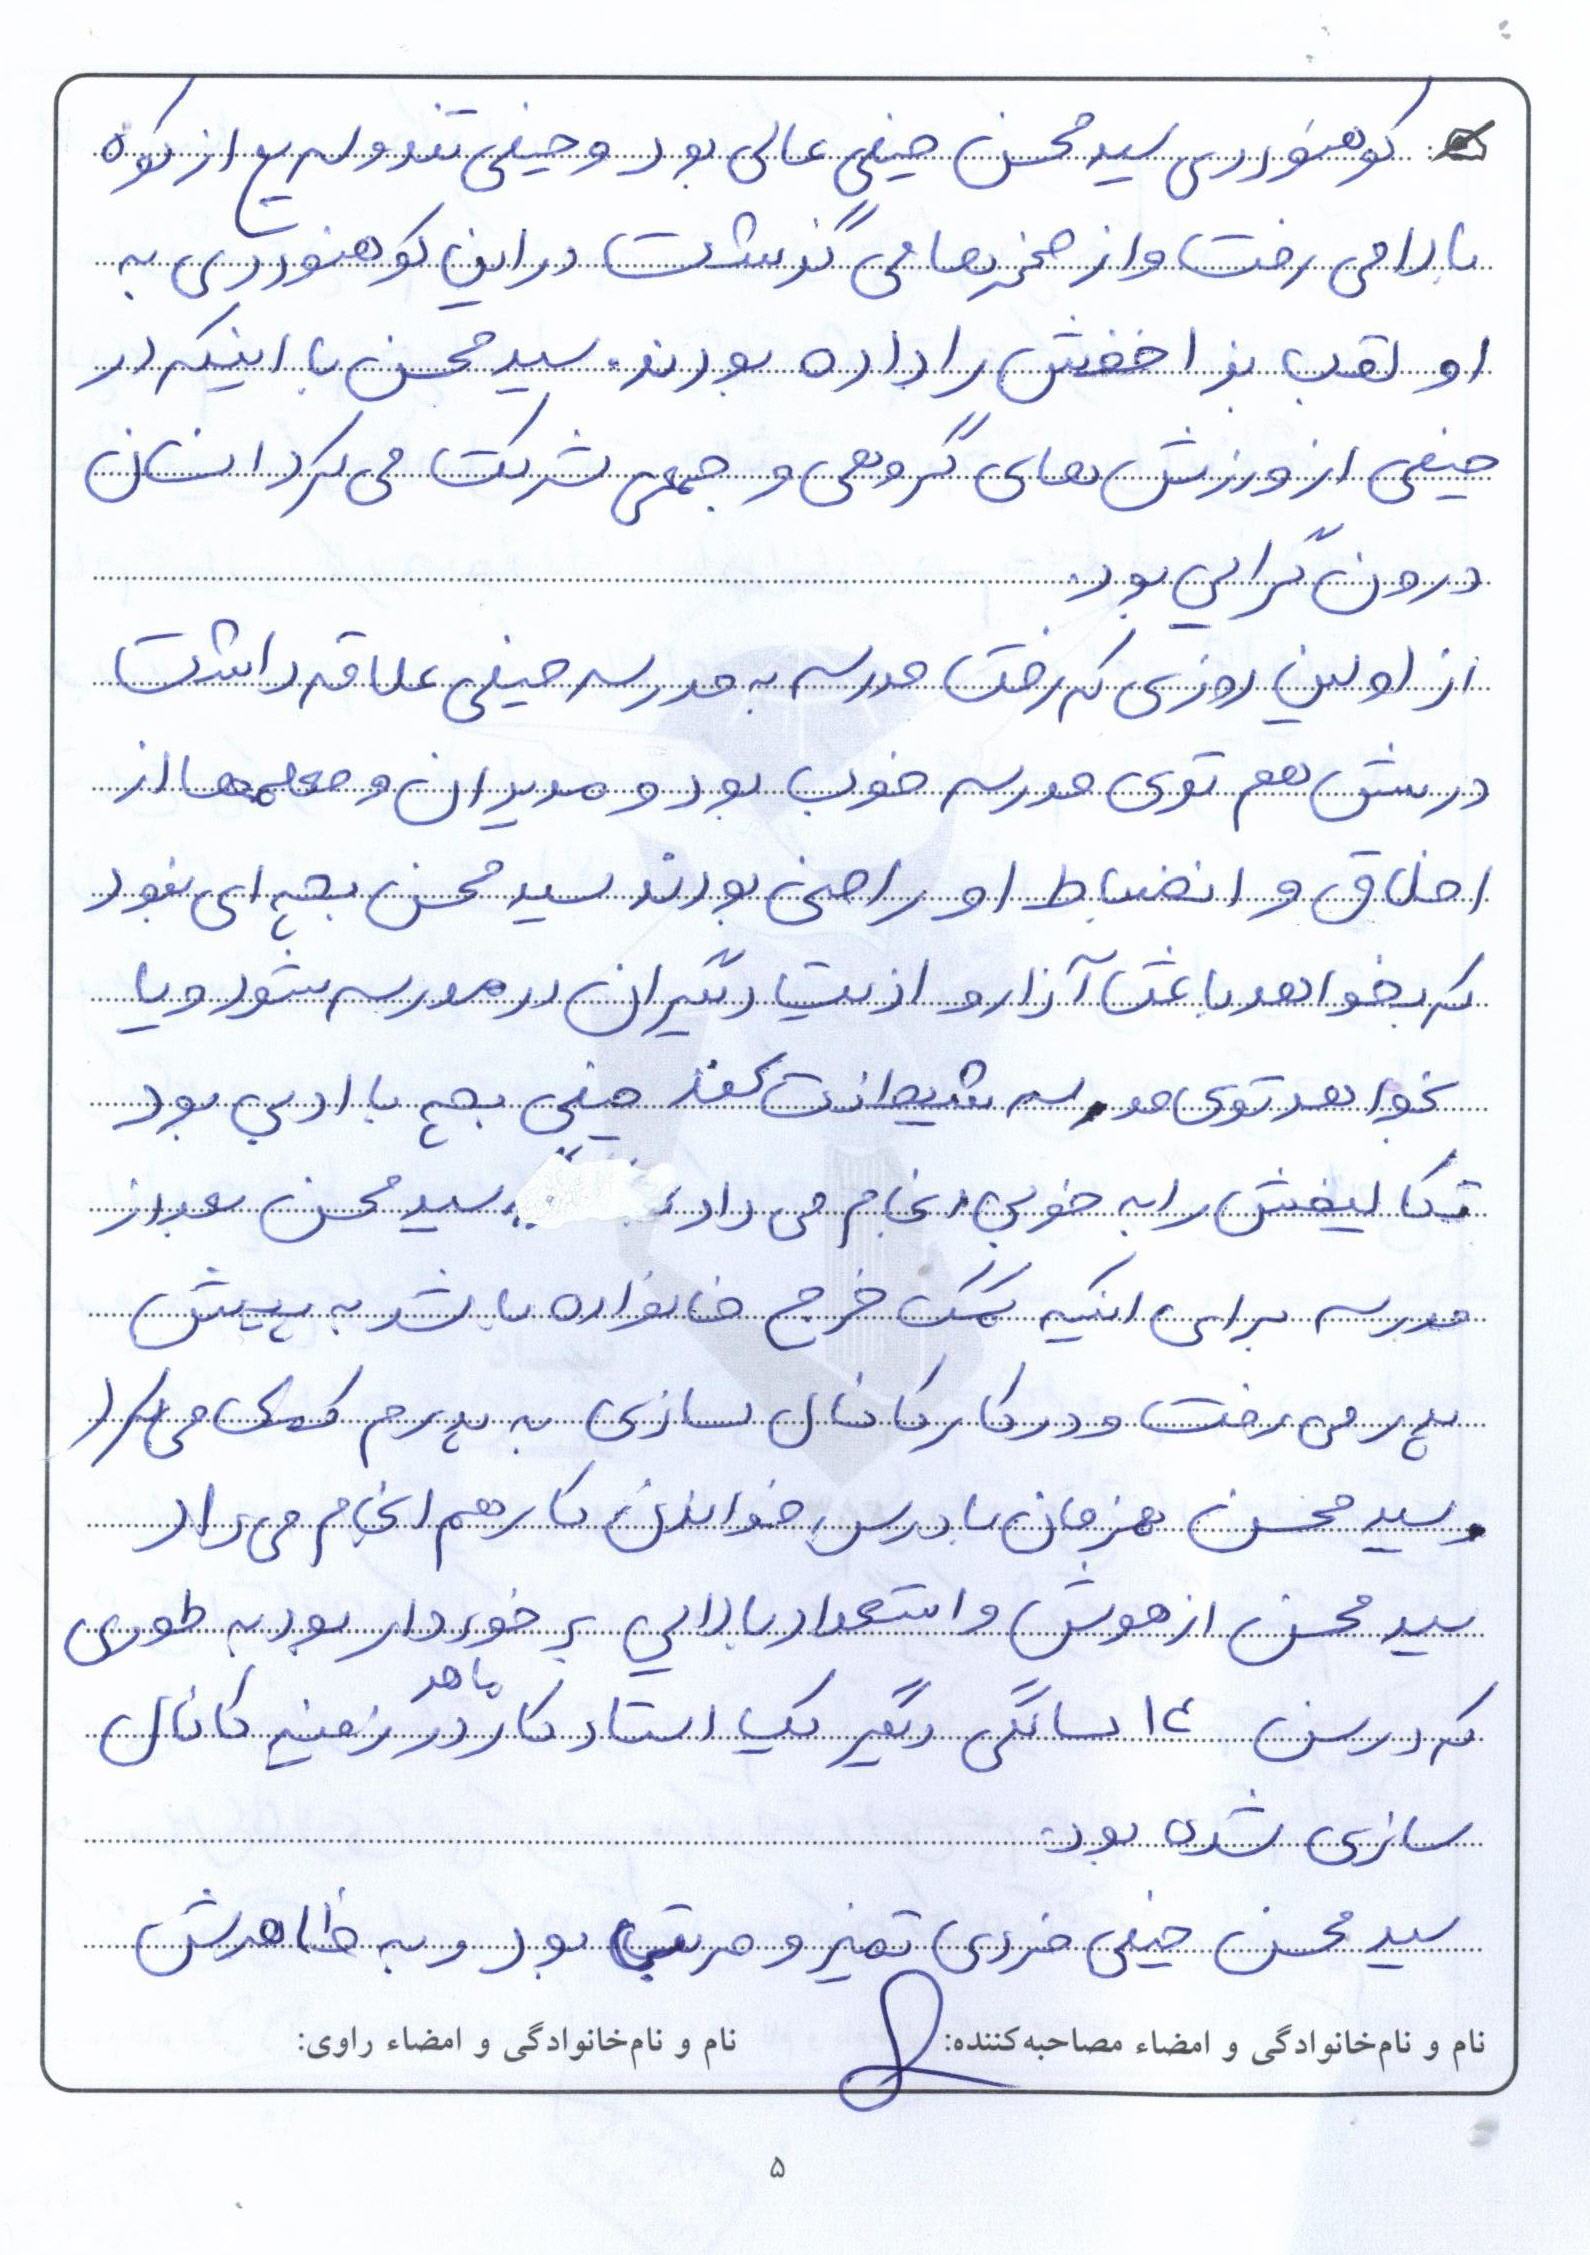 کوهنوردی سید محسن خیلی عالی بود و خیلی تند و سریع از کوه
بالا می رفت و از صخره ها می گذشت در این کوهنوردی به
او لقب بز اخفش را داده بودند. سید محسن با اینکه در
خیلی از ورزش های گروهی و جمعی شرکت می کرد انسان
درون گرایی بود.
از اولین روزی که رفت مدرسه به مدرسه خیلی علاقه داشت
درسش هم توی مدرسه خوب بود و مدیران و معلمها از
اخلاق و انضباط او راضی بودند سید محسن بچه ای نبود
که بخواهد باعث آزار و اذیت دیگران در مدرسه شود و یا
بخواهد توی مدرسه شیطانت کند خیلی بچه با ادبی بود
تکالیفش را به خوبی انجام می داد. سید محسن بعد از
مدرسه برای اینکه کمک خرج خانواده باشد به پیش
پدر می رفت و در کار کانال سازی به پدرم کمک می کرد
و سید محسن همزمان با درس خواندن کار هم انجام می داد
سید محسن از هوش و استعداد بالایی برخوردار بود به طوری
که در سن ۱۴ سالگی دیگر یک استاد کار ماهر در زمینه کانال
سازی شده بود.
سید محسن خیلی فردی تمیز و مرتب بود و به ظاهرش
نام و نام‌خانوادگی و امضاء مصاحبه‌کننده: نام و نام‌خانوادگی و امضاء راوی:
۵